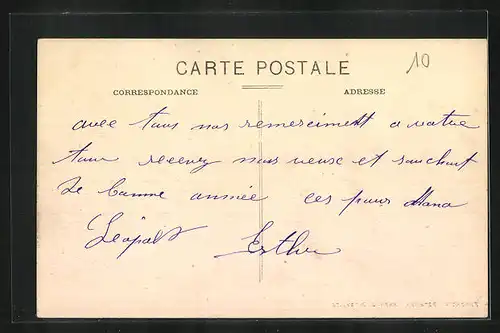 10
CARTE POSTALE
CORRESPONDANCE ADRESSE
avec tous nos remerciment a votre
tour recevez nos veuse et souchait
de bonne année ces pour Mana
Léopold Esther